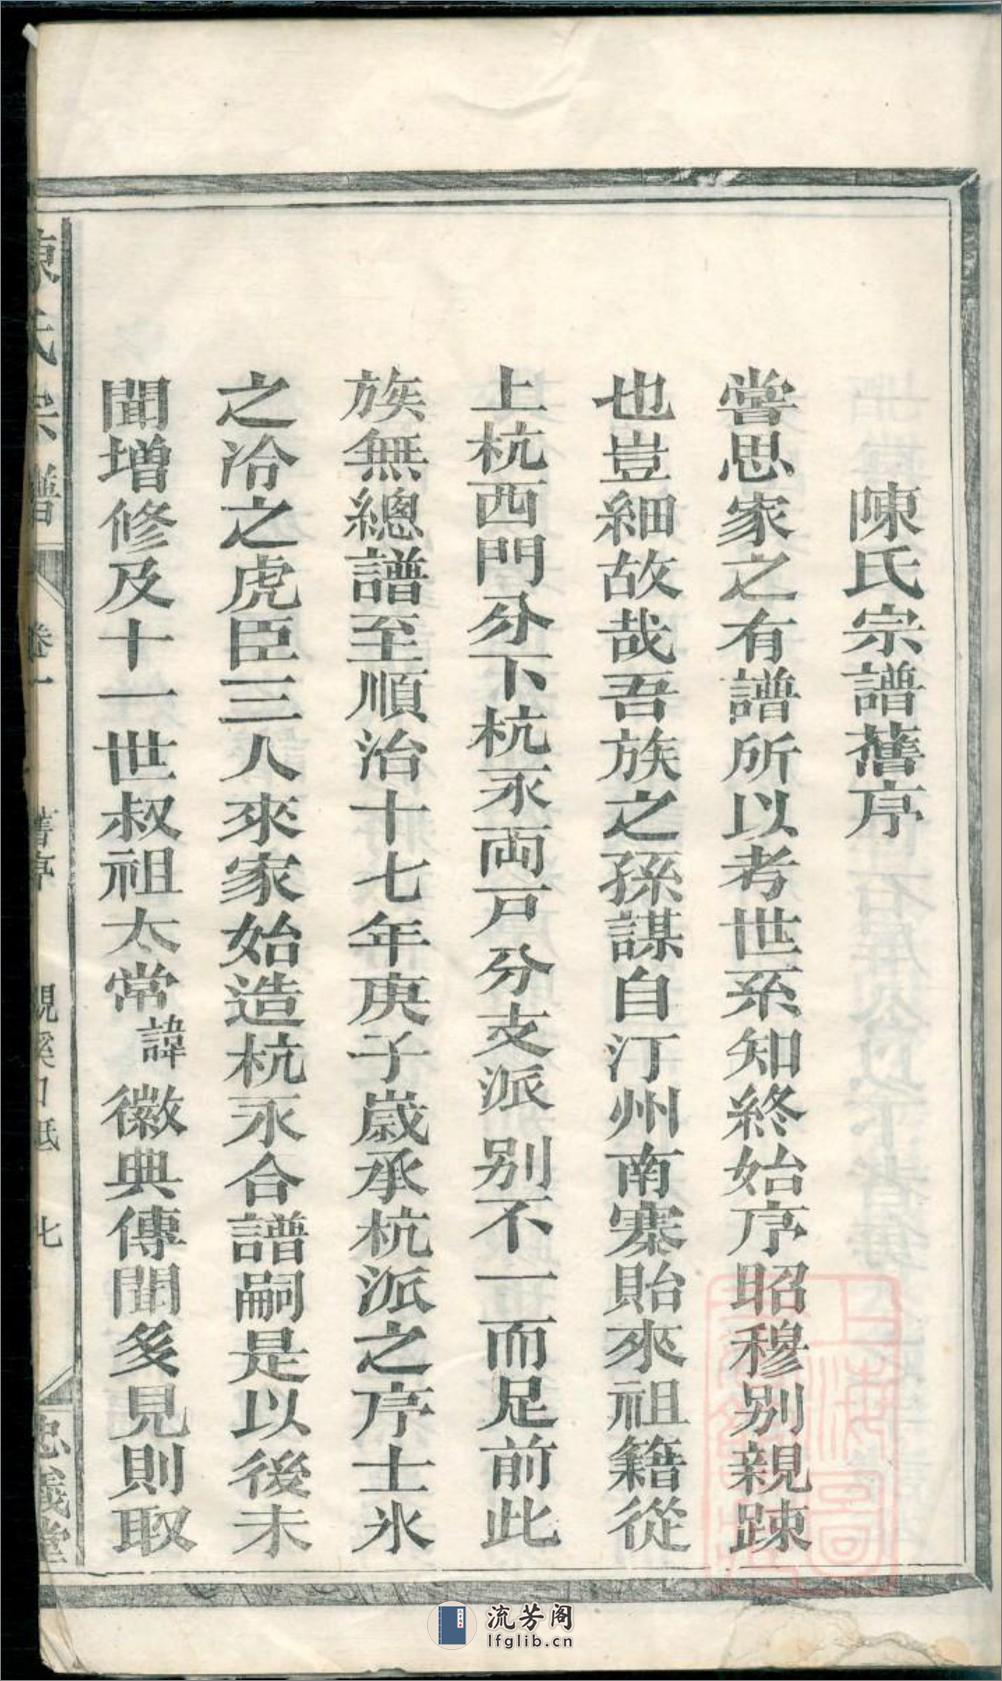 陳氏宗譜舊序
嘗思家之有譜所以考世系知終始序昭穆别親踈
也豈細故哉吾族之孫謀自汀州南寨貽來祖籍從
上杭西門分下杭永両戸分支派别不一而足前此
族無總譜至順治十七年庚子嵗承杭派之序士氷
之冾之虎臣三人來家始造杭永合譜嗣是以後未
聞增修及十一世叔祖太常諱徽典傳聞多見則取
陳氏宗譜
卷一
舊序
硯溪口祗
七
忠義堂
流芳阁
lfglib.cn